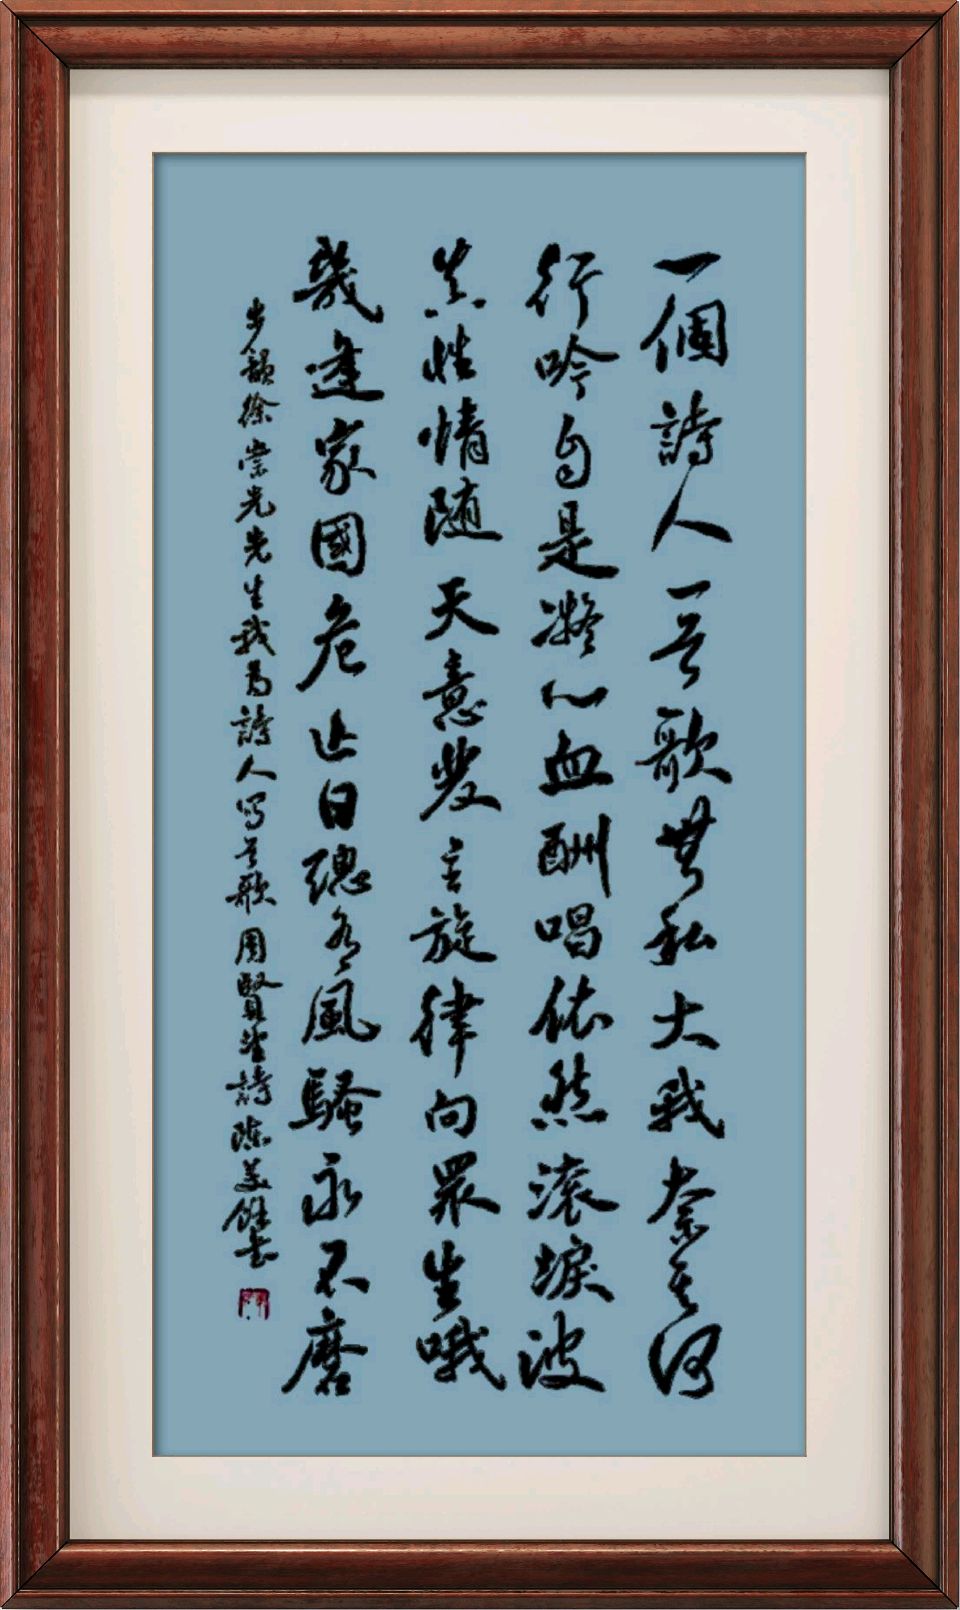 一個詩人一首歌無私大我奈其何
行吟自是凝心血酬唱依然滾淚波
真性情随天意發主旋律向眾生哦
幾逢家國危亡日總有風騷永不磨
步韻徐崇光先生我為詩人寫首歌 周賢望詩 陳美書